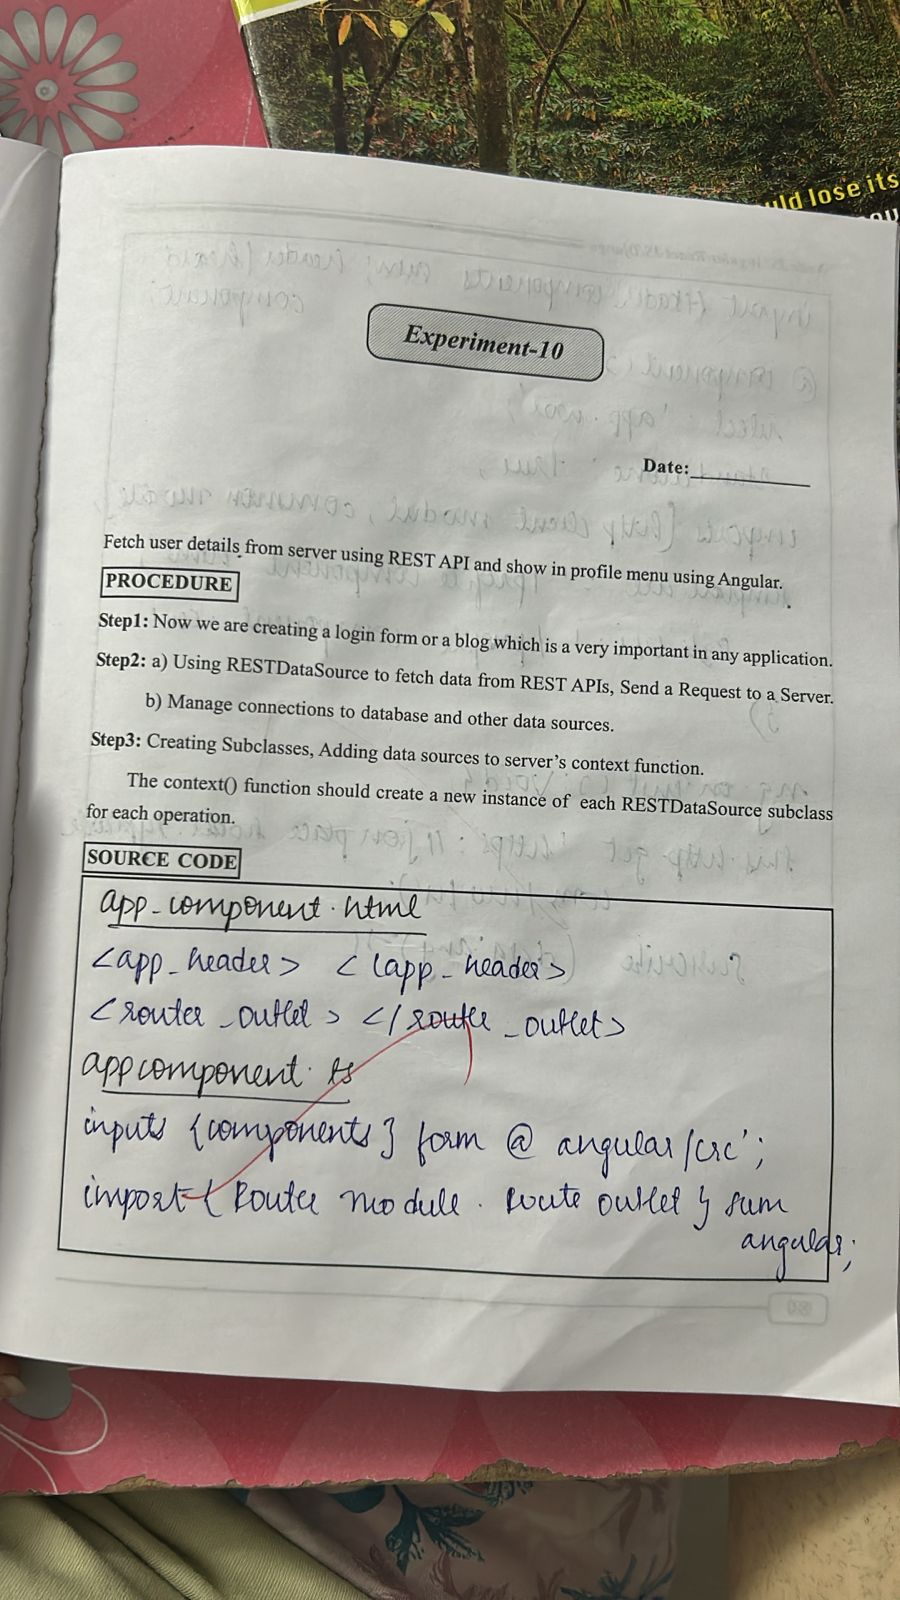 uld lose its
Experiment-10
Date:
Fetch user details from server using REST API and show in profile menu using Angular.
PROCEDURE
Step1: Now we are creating a login form or a blog which is a very important in any application.
Step2: a) Using RESTDataSource to fetch data from REST APIs, Send a Request to a Server.
b) Manage connections to database and other data sources.
Step3: Creating Subclasses, Adding data sources to server's context function.
The context() function should create a new instance of each RESTDataSource subclass
for each operation.
SOURCE CODE
app_component.html
<app_header> <(app_header>
<router_outlet> </router_outlet>
appcomponent.ts
inputs {components} form @ angular/crc';
import { Router module . route outlet } sum
angular;